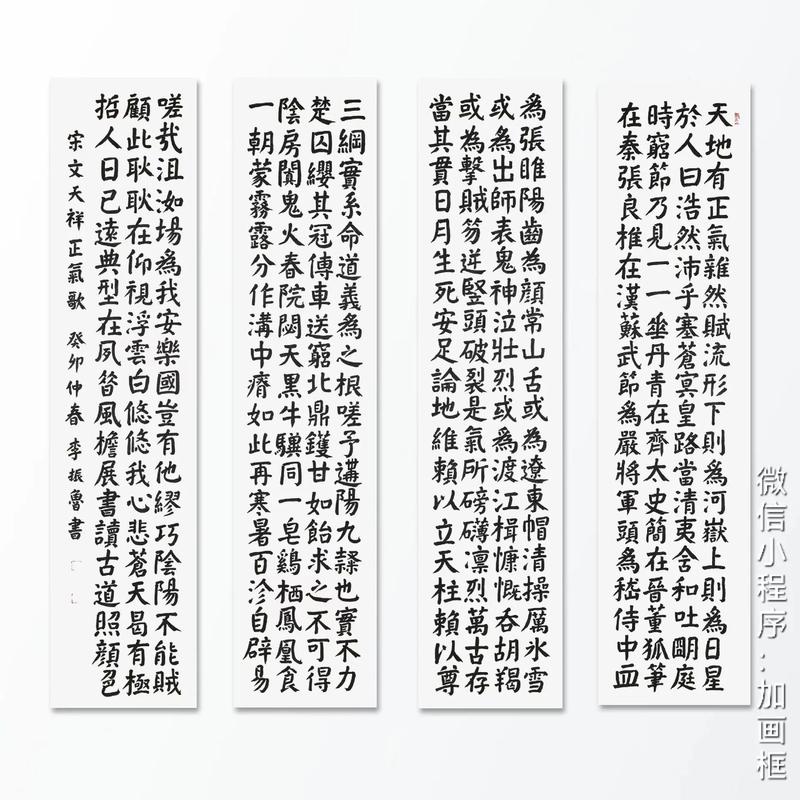 天地有正氣雜然賦流形下則為河嶽上則為日星
於人曰浩然沛乎塞蒼冥皇路當清夷含和吐朙庭
時窮節乃見一一垂丹青在齊太史簡在晉董狐筆
在秦張良椎在漢蘇武節為嚴將軍頭為嵇侍中血
為張睢陽齒為顏常山舌或為遼東帽清操厲氷雪
或為出師表鬼神泣壯烈或為渡江楫慷慨吞胡羯
或為擊賊笏逆竪頭破裂是氣所磅礴凛烈萬古存
當其貫日月生死安足論地維賴以立天柱賴以尊
三綱實系命道義為之根嗟予遘陽九隸也實不力
楚囚纓其冠傳車送窮北鼎鑊甘如飴求之不可得
陰房闃鬼火春院閟天黑牛驥同一皂鷄栖鳳凰食
一朝蒙霧露分作溝中瘠如此再寒暑百沴自辟易
嗟哉沮洳場為我安樂國豈有他繆巧陰陽不能賊
顧此耿耿在仰視浮雲白悠悠我心悲蒼天曷有極
哲人日已遠典型在夙昔風檐展書讀古道照顏色
宋文天祥正氣歌 癸卯仲春 李振魯書
微信小程序：加画框